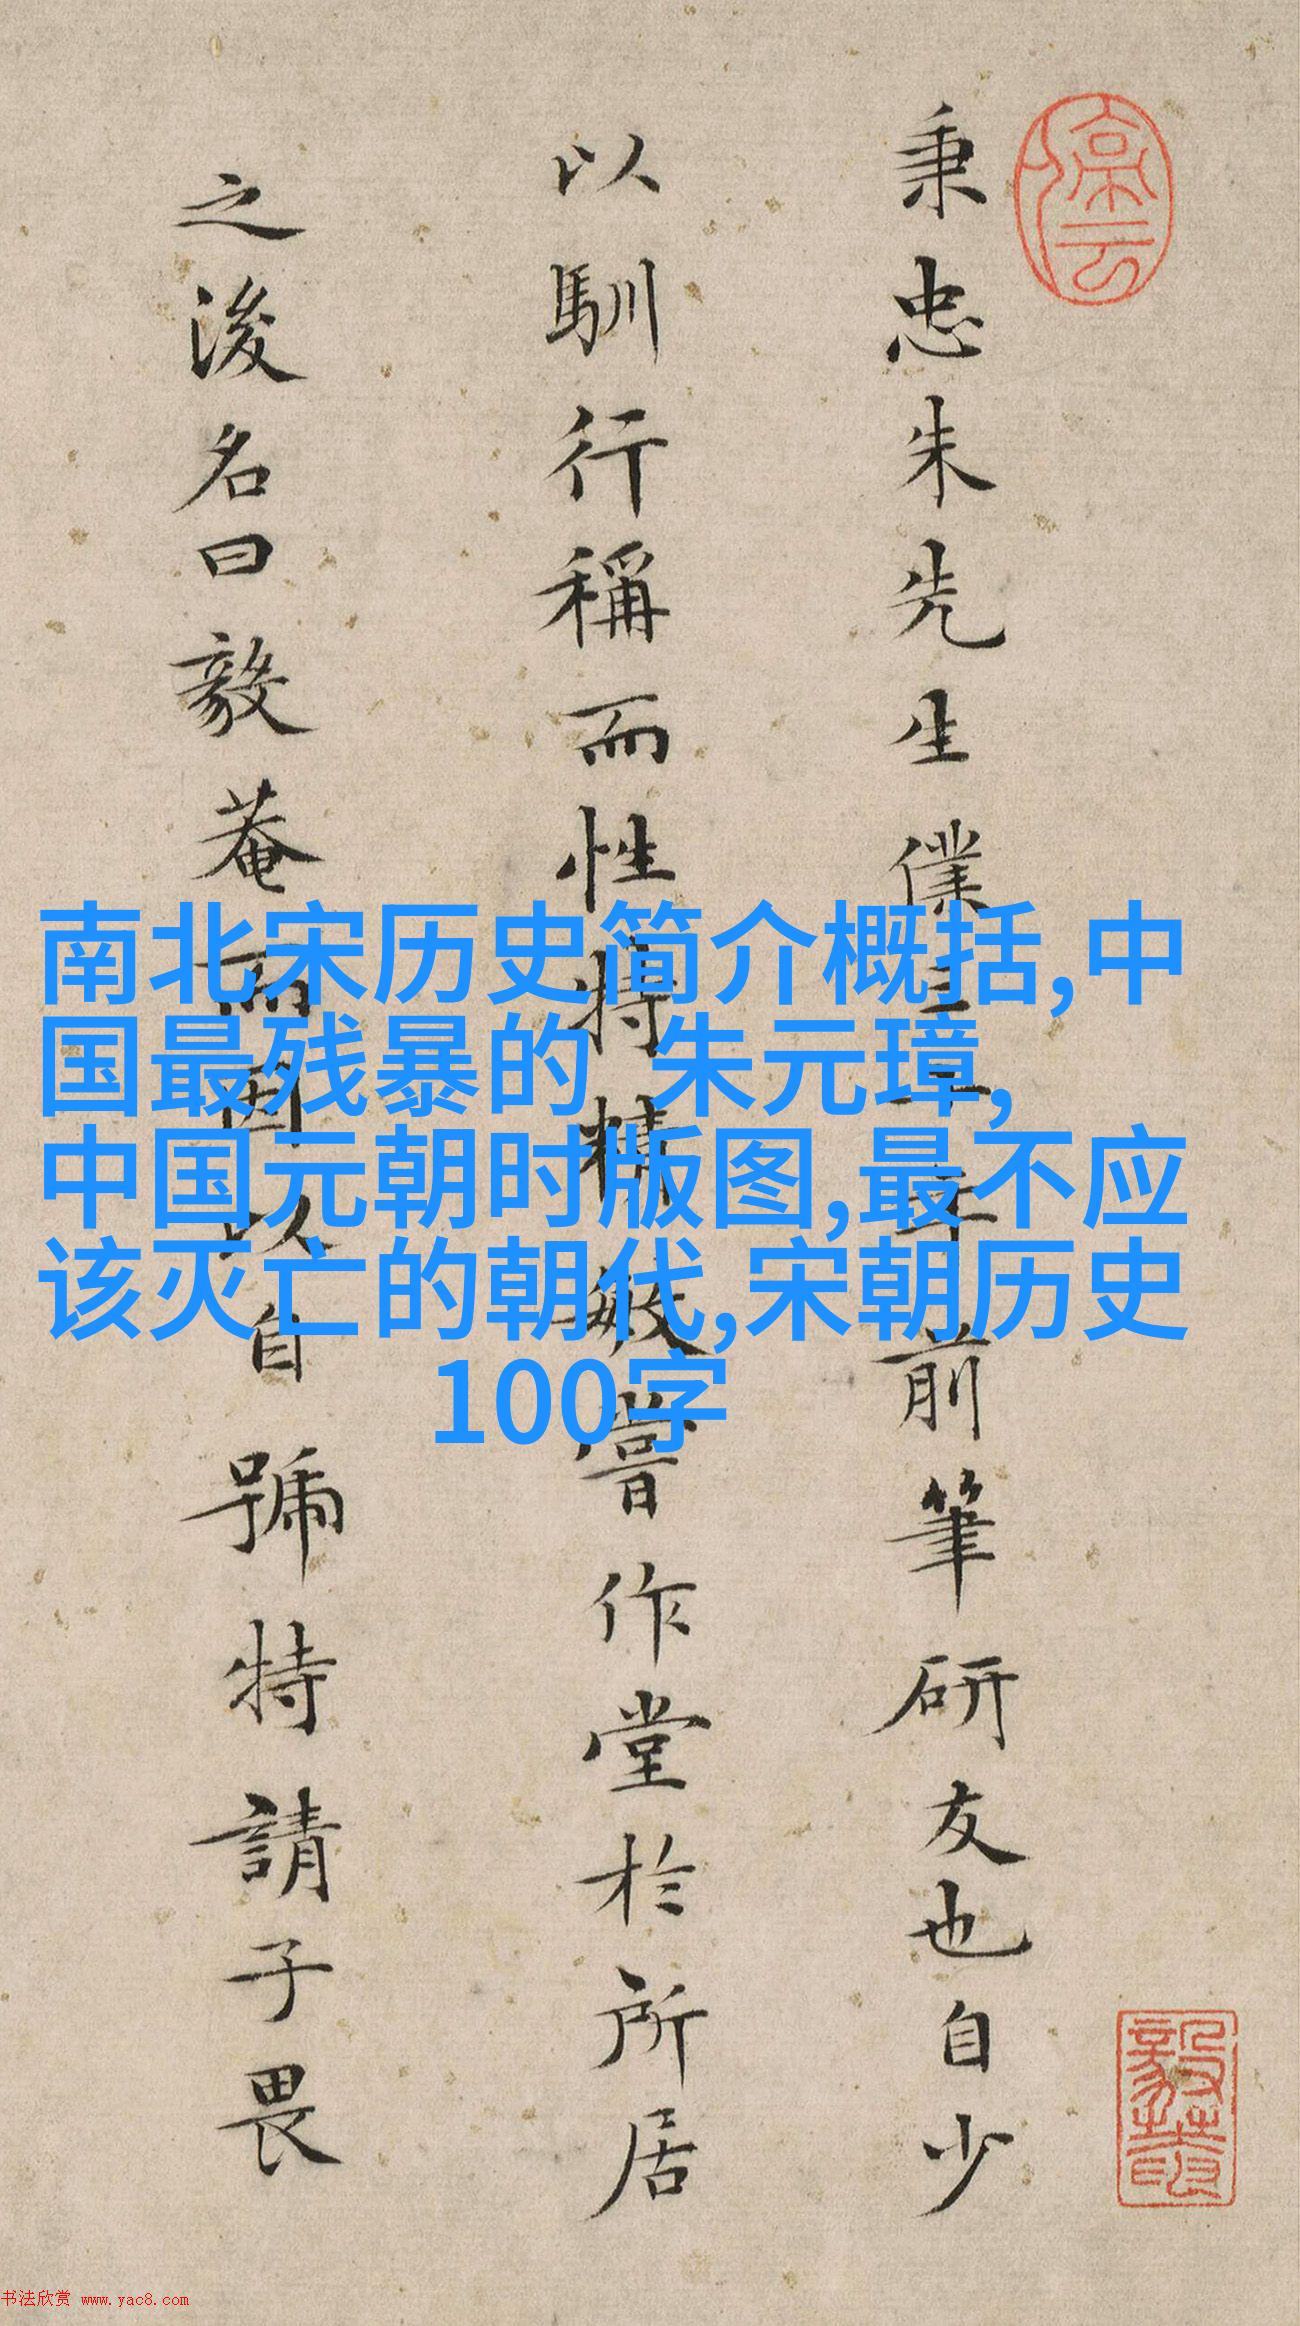 停云
秉忠朱先生僕三十年前筆研友也自少
以馴行稱而性特精敏嘗作堂於所居
之後名曰毅菴而因以自號特請子畏
南北宋历史简介概括,中
国最残暴的 朱元璋,
中国元朝时版图,最不应
该灭亡的朝代,宋朝历史
100字
书法欣赏 www.yac8.com